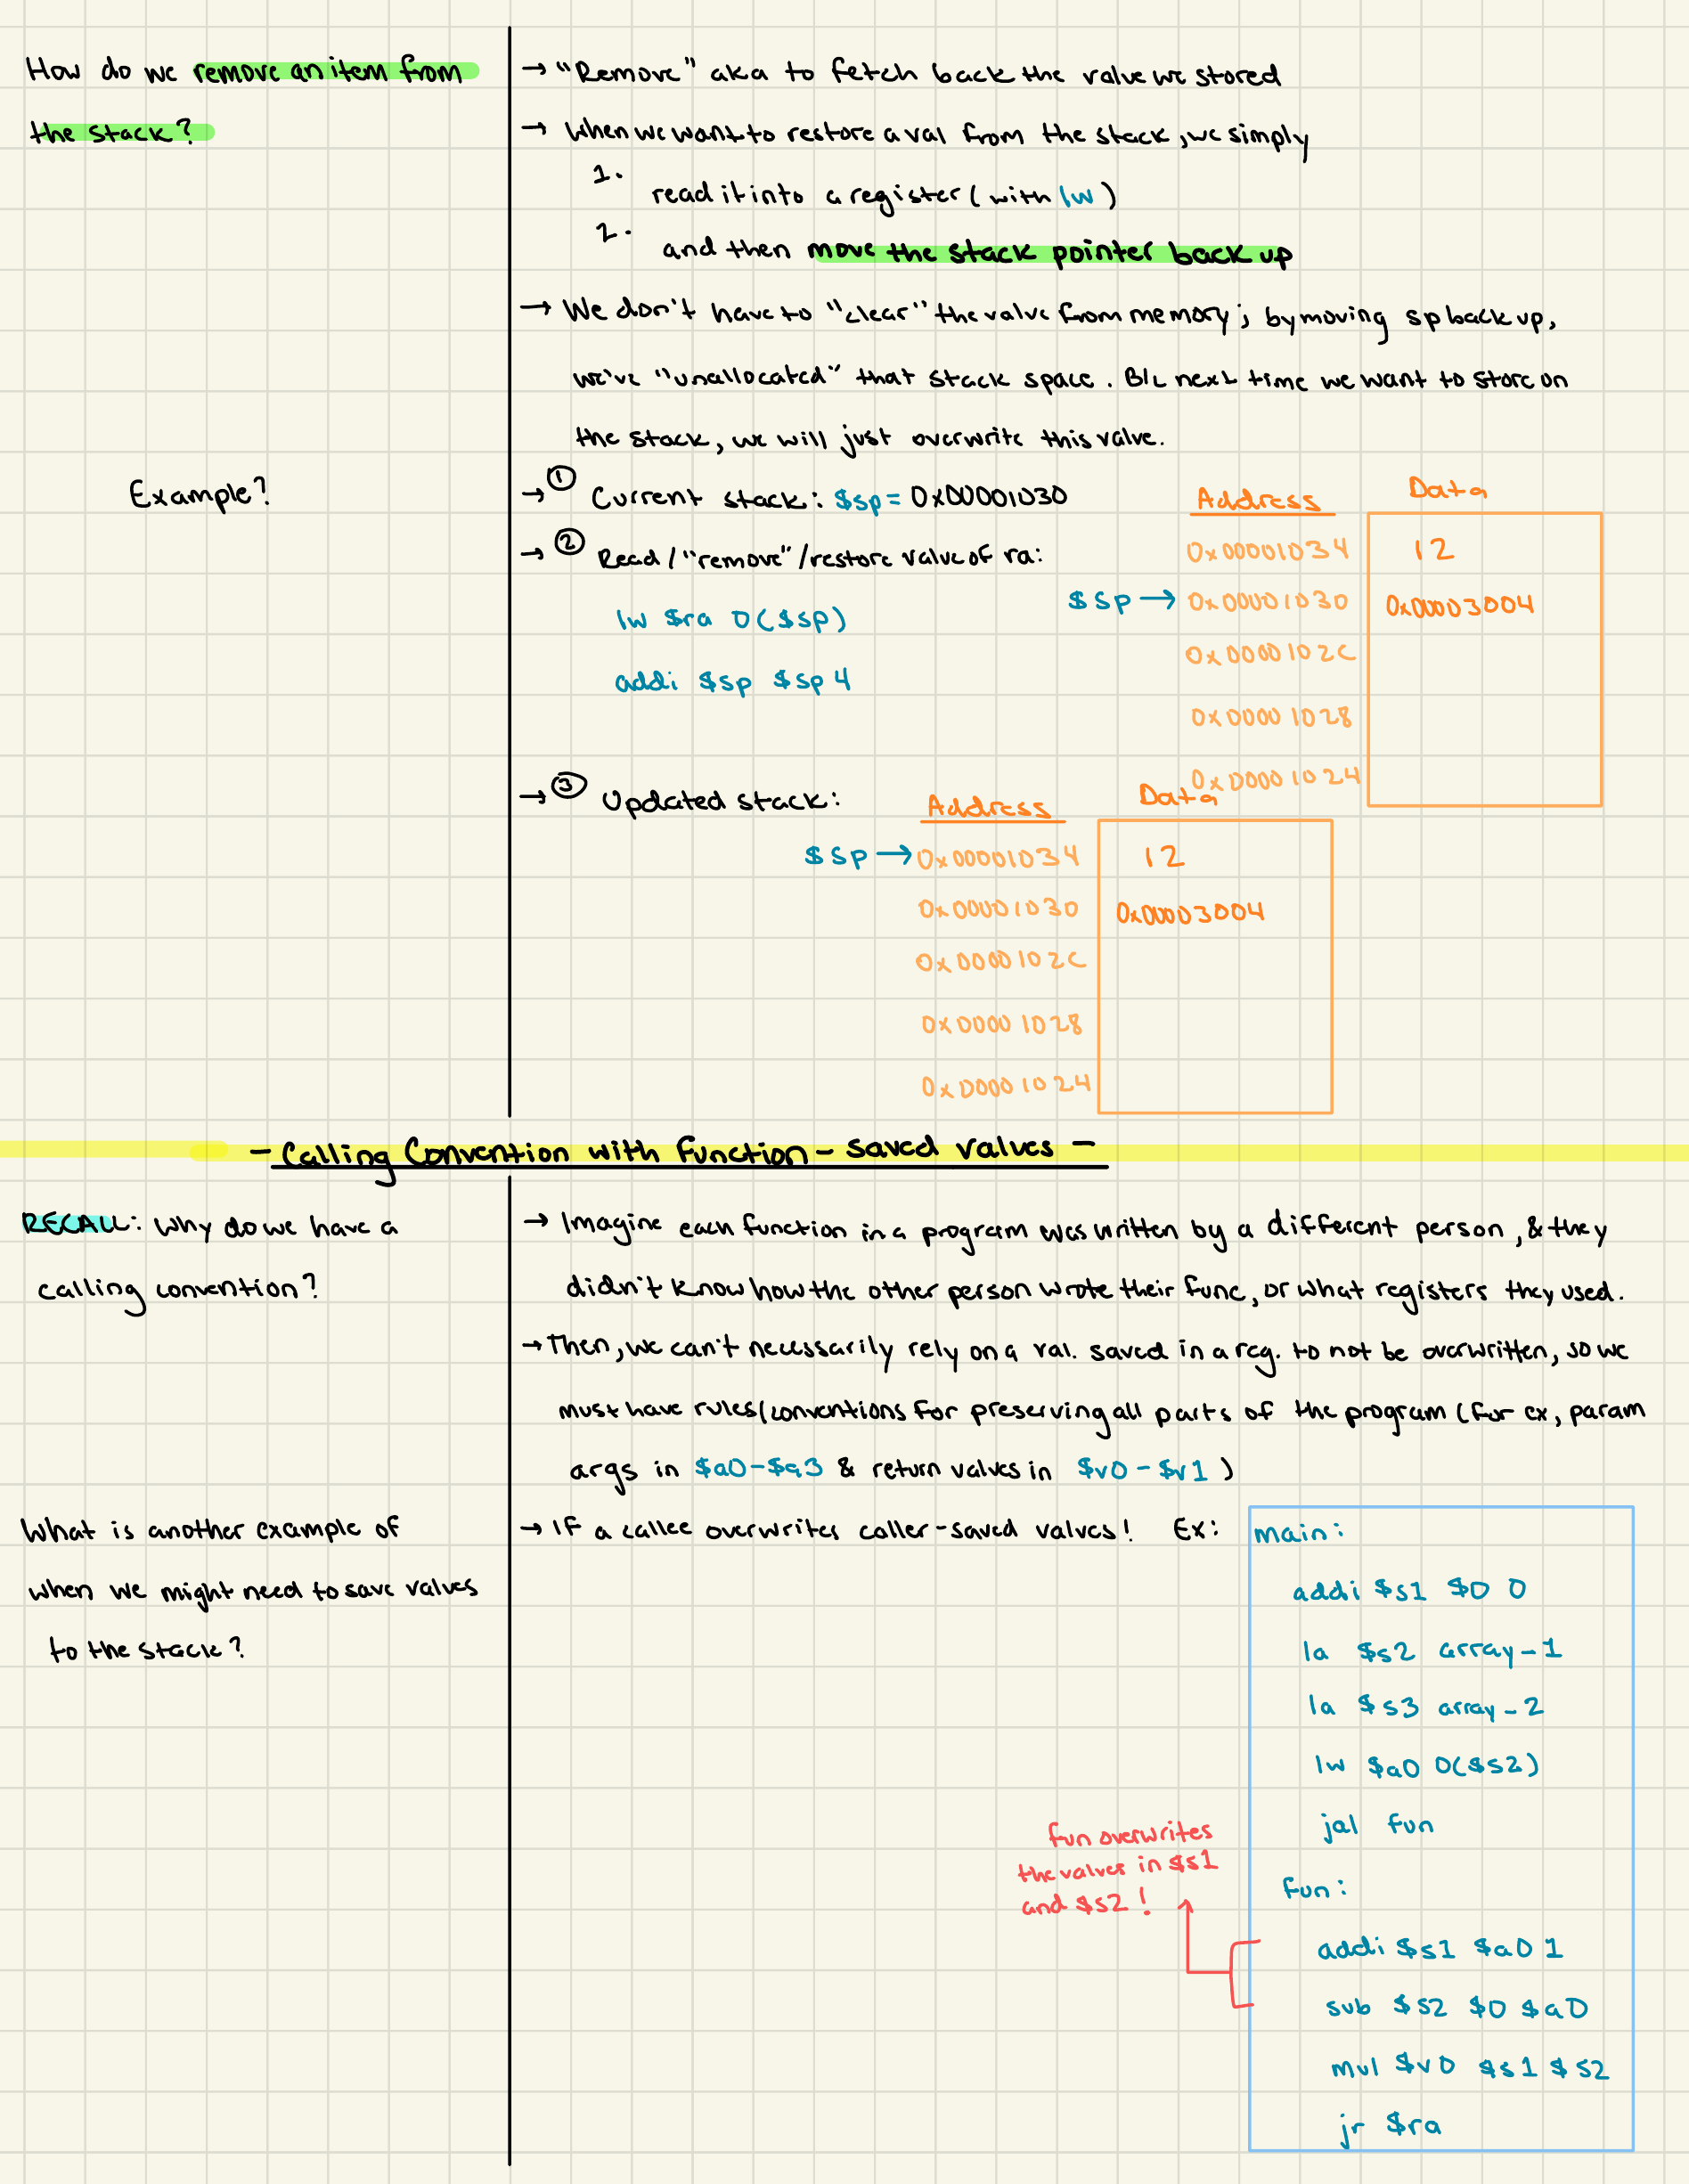 How do we remove an item from
the stack?
→ "Remove" aka to fetch back the value we stored
→ When we want to restore a val from the stack, we simply
1. read it into a register (with lw)
2. and then move the stack pointer back up
→ We don't have to "clear" the value from memory; by moving sp back up,
we've "unallocated" that stack space. B/c next time we want to store on
the stack, we will just overwrite this value.
Example?
→ ① Current stack: $sp = 0x00001030
→ ② Read / "remove" / restore value of ra:
lw $ra 0($sp)
addi $sp $sp 4
Address Data
0x00001034 12
$sp → 0x00001030 0x00003004
0x0000102C
0x00001028
0x00001024
→ ③ Updated stack:
Address Data
$sp → 0x00001034 12
0x00001030 0x00003004
0x0000102C
0x00001028
0x00001024
- Calling Convention with Function-Saved Values -
RECALL: Why do we have a
calling convention?
→ Imagine each function in a program was written by a different person, & they
didn't know how the other person wrote their func, or what registers they used.
→ Then, we can't necessarily rely on a val. saved in a reg. to not be overwritten, so we
must have rules/conventions for preserving all parts of the program (for ex, param
args in $a0-$a3 & return values in $v0-$v1)
What is another example of
when we might need to save values
to the stack?
→ IF a callee overwrites caller-saved values! Ex:
main:
addi $s1 $0 0
la $s2 array-1
la $s3 array-2
lw $a0 0($s2)
jal fun
fun:
addi $s1 $a0 1
sub $s2 $0 $a0
mul $v0 $s1 $s2
jr $ra
fun overwrites
the values in $s1
and $s2!